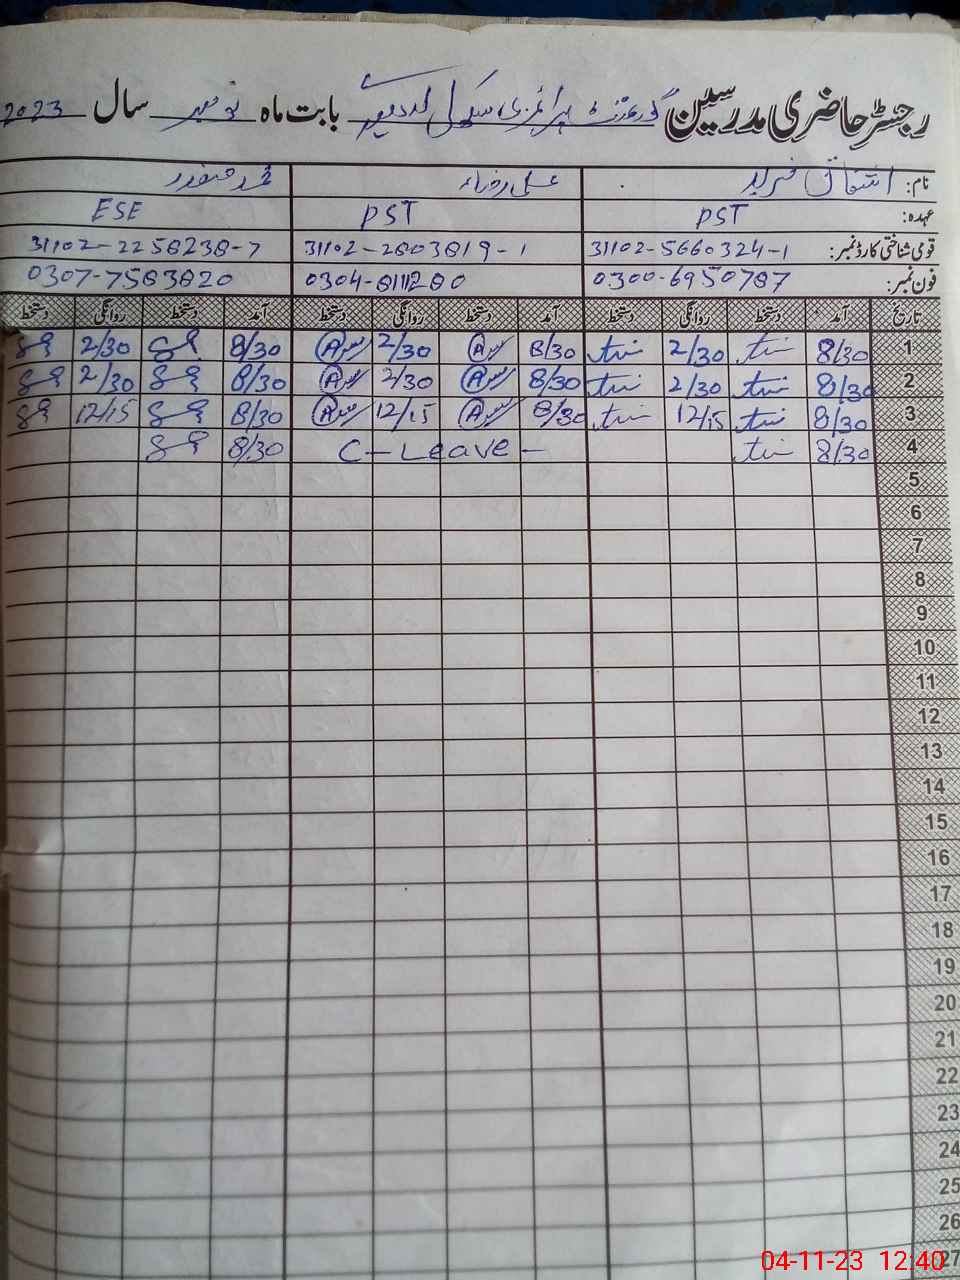 رجسٹر حاضری مدرسین گورنمنٹ پرائمری سکول بابت ماہ نومبر سال 2023
نام: اشفاق فرید علی رضا محمد صفدر
عہدہ: PST PST ESE
قومی شناختی کارڈ نمبر: 31102-5660324-1 31102-2803819-1 31102-2258238-7
فون نمبر: 0300-6950787 0304-8111280 0307-7583820
تاریخ آمد دستخط روانگی دستخط آمد دستخط روانگی دستخط آمد دستخط روانگی دستخط
1 8/30 2/30 8/30 2/30 8/30 2/30
2 8/30 2/30 8/30 2/30 8/30 2/30
3 8/30 12/15 8/30 12/15 8/30 12/15
4 8/30 C-Leave- 8/30
5
6
7
8
9
10
11
12
13
14
15
16
17
18
19
20
21
22
23
24
25
26
27
04-11-23 12:40